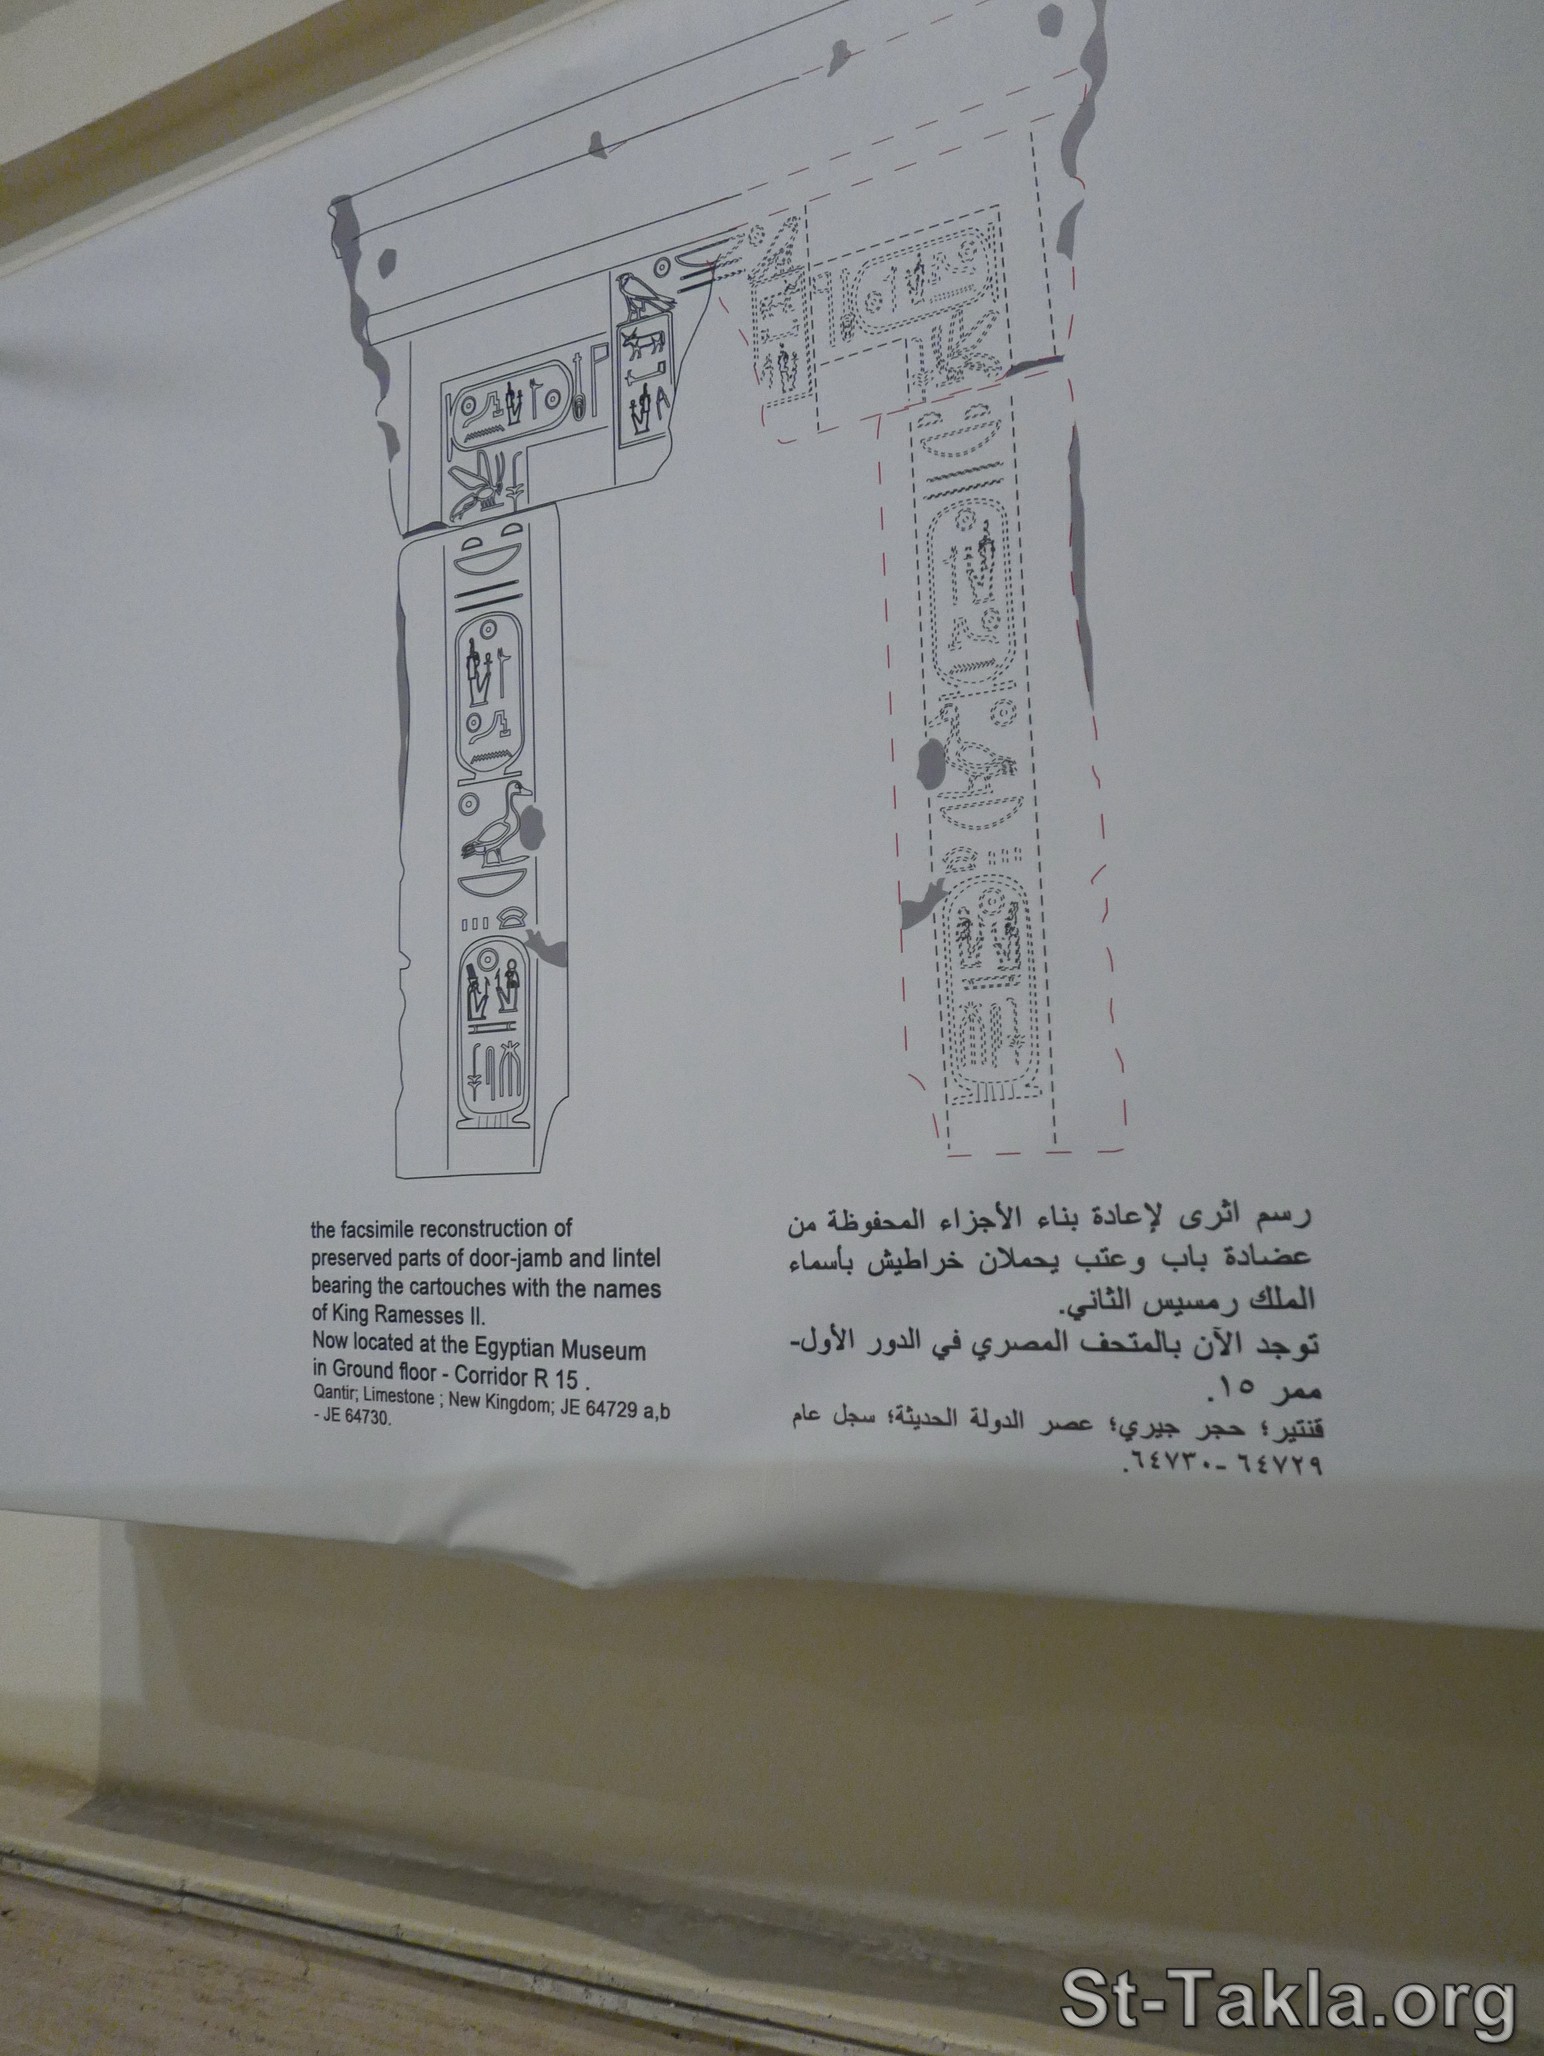 the facsimile reconstruction of
preserved parts of door-jamb and lintel
bearing the cartouches with the names
of King Ramesses II.
Now located at the Egyptian Museum
in Ground floor - Corridor R 15 .
Qantir; Limestone ; New Kingdom; JE 64729 a,b
- JE 64730.
رسم اثرى لإعادة بناء الأجزاء المحفوظة من
عضادة باب وعتب يحملان خراطيش بأسماء
الملك رمسيس الثاني.
توجد الآن بالمتحف المصري في الدور الأول-
ممر ١٥.
قنتير؛ حجر جيري؛ عصر الدولة الحديثة؛ سجل عام
٦٤٧٢٩ -٦٤٧٣٠.
St-Takla.org